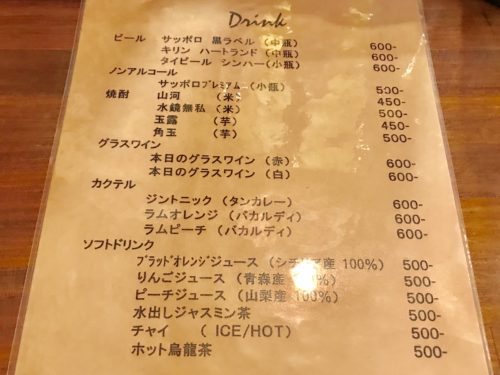 Drink
ビール サッポロ 黒ラベル (中瓶)
キリン ハートランド (中瓶) 600-
タイビール シンハー(小瓶) 600-
ノンアルコール
サッポロプレミアム(小瓶) 500-
焼酎 山河 (米) 450-
水鏡無私 (米) 500-
玉露 (芋) 450-
角玉 (芋) 500-
グラスワイン
本日のグラスワイン (赤) 600-
本日のグラスワイン (白) 600-
カクテル
ジントニック (タンカレー) 600-
ラムオレンジ (バカルディ) 600-
ラムピーチ (バカルディ) 600-
ソフトドリンク
ブラッドオレンジジュース (シチリア産 100%) 500-
りんごジュース (青森産 100%) 500-
ピーチジュース (山梨産 100%) 500-
水出しジャスミン茶 500-
チャイ ( ICE/HOT) 500-
ホット烏龍茶 500-